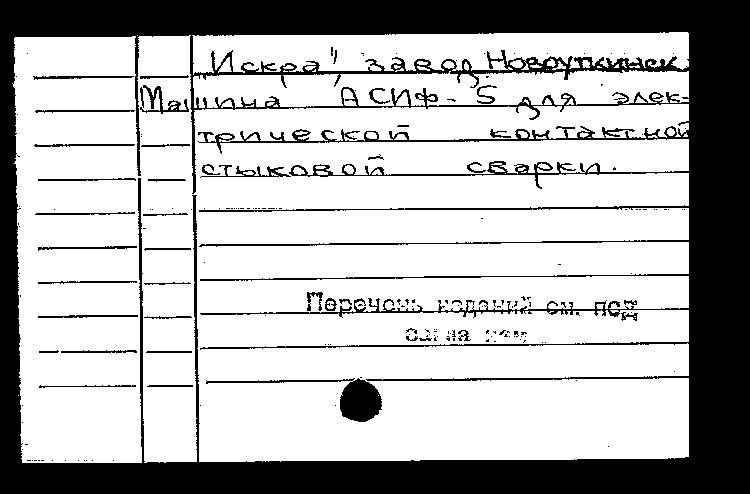 „Искра", завод Новоуткинск.
Машина АСИФ-5 для элек-
трической контактной
стыковой сварки.
Перечень изданий см. под